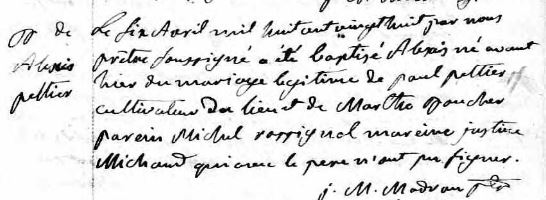 B de
Alexis
peltier
Le six Avril mil huit cent vingt huit par nous
prêtre soussigné a été baptisé Alexis né avant
hier du mariage legitime de paul peltier
cultivateur du lieu et de Marthe Boucher
parein Michel rossignol mareine justine
Michaud qui avec le pere n'ont pu signer.
j. M. Madran ptre